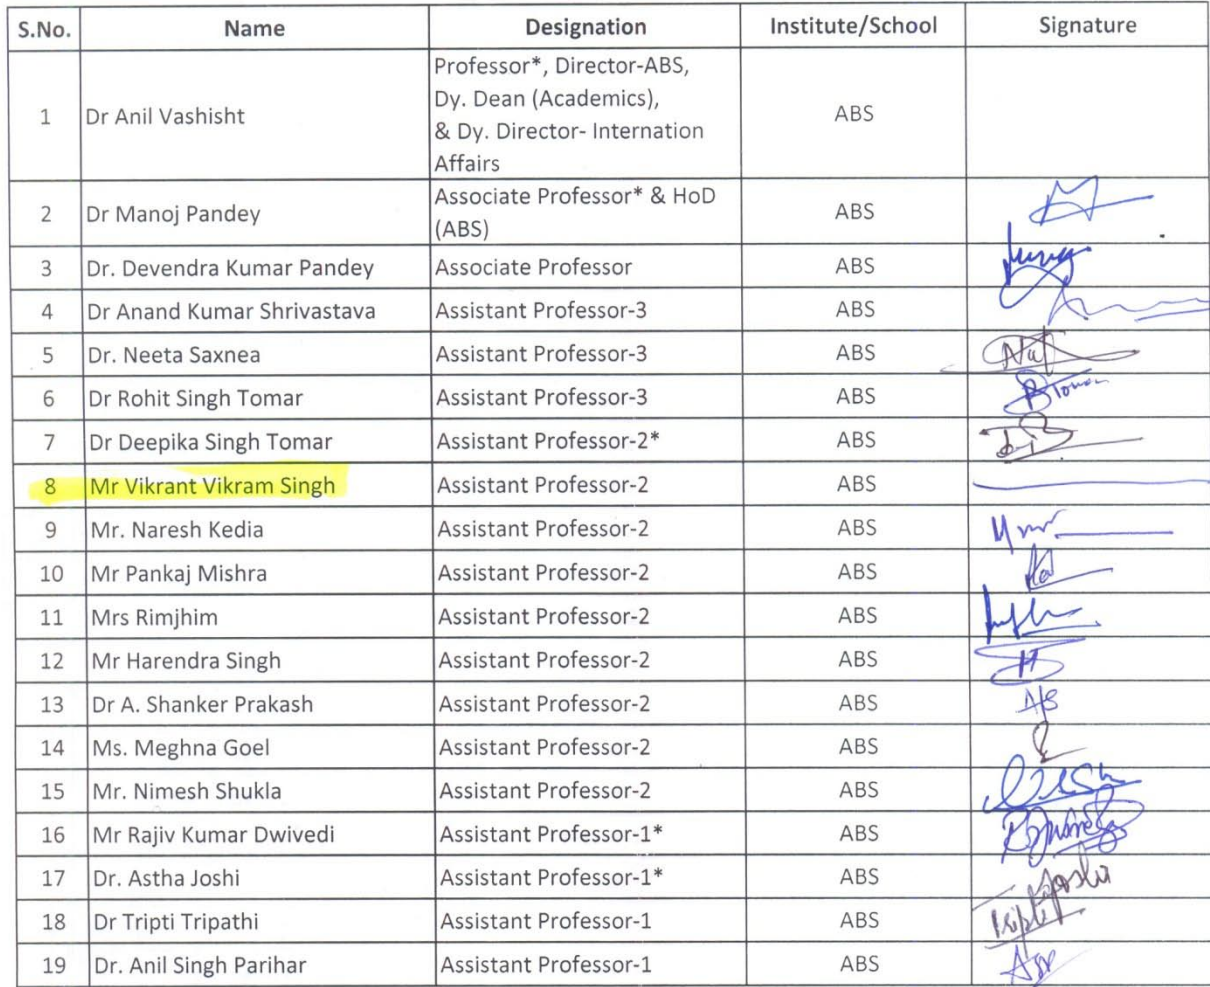 S.No. Name Designation Institute/School Signature
1 Dr Anil Vashisht Professor*, Director-ABS, ABS
Dy. Dean (Academics),
& Dy. Director- Internation
Affairs
2 Dr Manoj Pandey Associate Professor* & HoD ABS
(ABS)
3 Dr. Devendra Kumar Pandey Associate Professor ABS
4 Dr Anand Kumar Shrivastava Assistant Professor-3 ABS
5 Dr. Neeta Saxnea Assistant Professor-3 ABS
6 Dr Rohit Singh Tomar Assistant Professor-3 ABS
7 Dr Deepika Singh Tomar Assistant Professor-2* ABS
8 Mr Vikrant Vikram Singh Assistant Professor-2 ABS
9 Mr. Naresh Kedia Assistant Professor-2 ABS
10 Mr Pankaj Mishra Assistant Professor-2 ABS
11 Mrs Rimjhim Assistant Professor-2 ABS
12 Mr Harendra Singh Assistant Professor-2 ABS
13 Dr A. Shanker Prakash Assistant Professor-2 ABS
14 Ms. Meghna Goel Assistant Professor-2 ABS
15 Mr. Nimesh Shukla Assistant Professor-2 ABS
16 Mr Rajiv Kumar Dwivedi Assistant Professor-1* ABS
17 Dr. Astha Joshi Assistant Professor-1* ABS
18 Dr Tripti Tripathi Assistant Professor-1 ABS
19 Dr. Anil Singh Parihar Assistant Professor-1 ABS